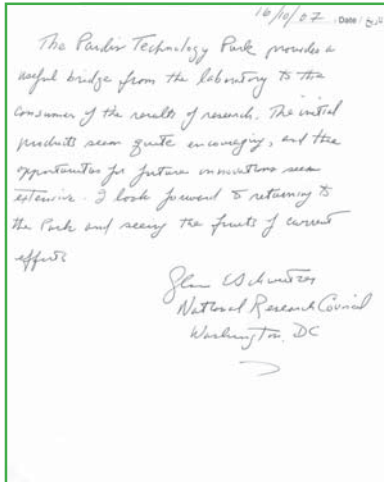 16/10/07 Date / تاریخ
The Pardis Technology Park provides a
useful bridge from the laboratory to the
consumer of the results of research. The initial
products seem quite encouraging, and the
opportunities for future innovations seem
extensive. I look forward to returning to
the Park and seeing the fruits of current
efforts
Glenn Schweitzer
National Research Council
Washington, DC